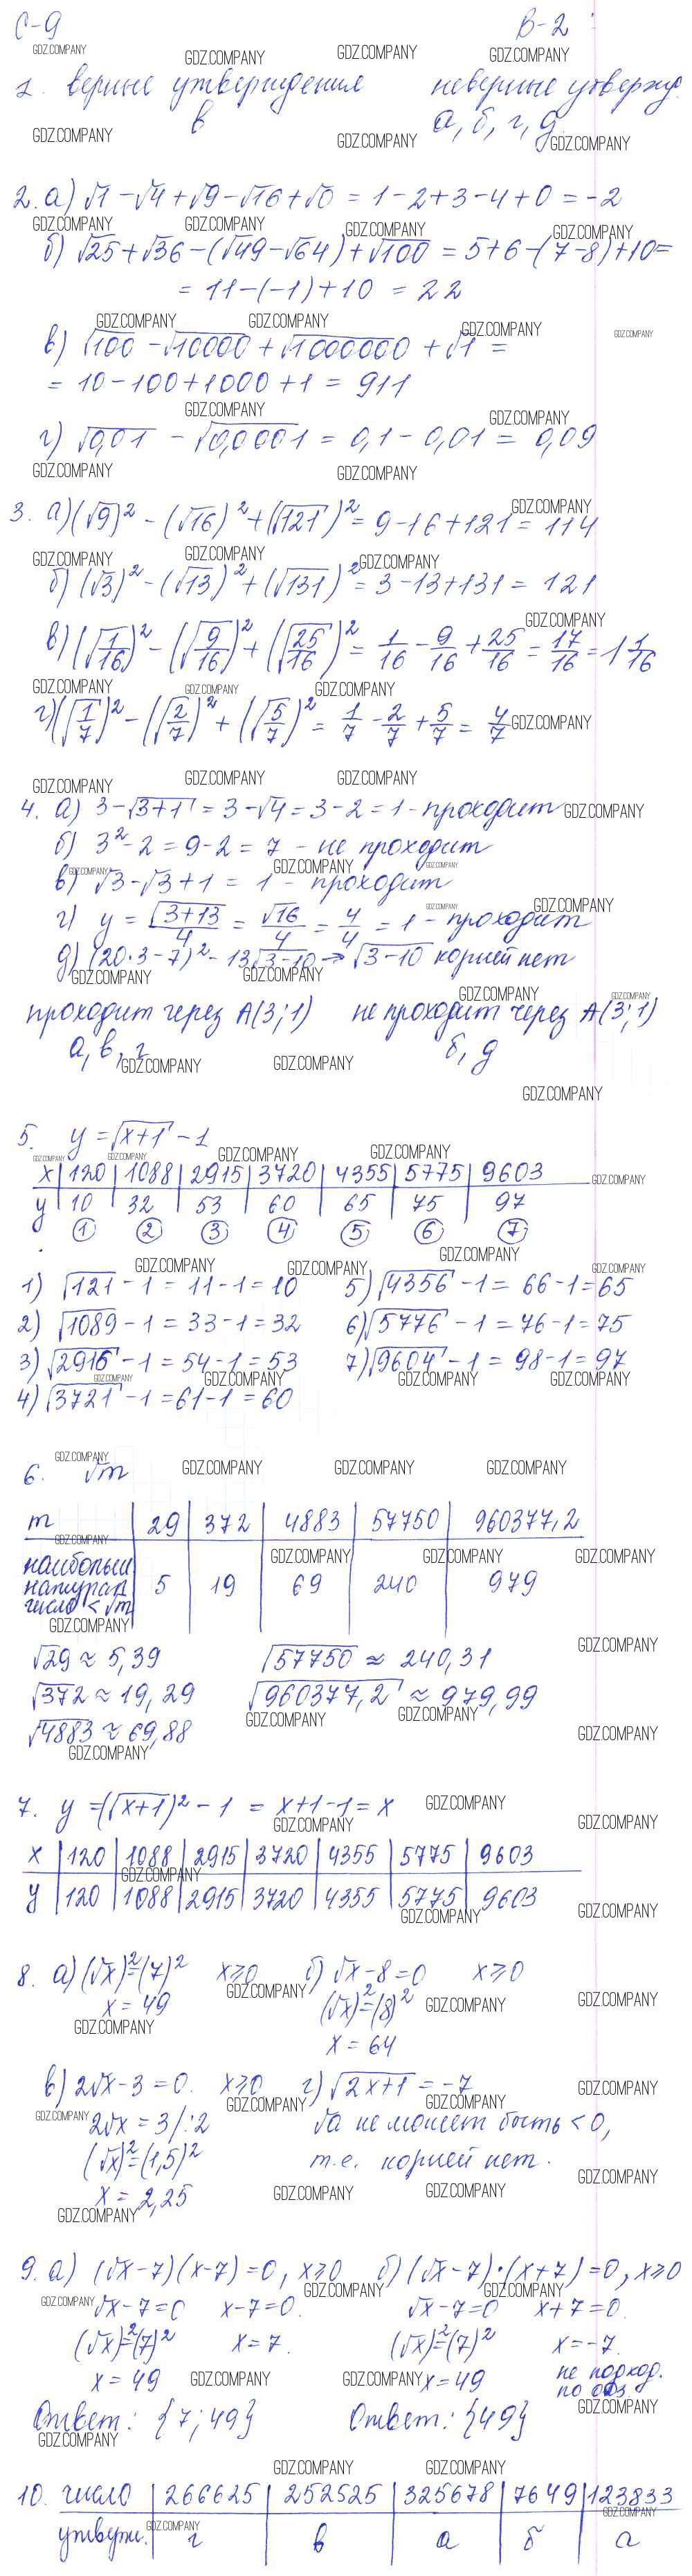 С-9 В-2
1. верные утверждения неверные утвержд.
в а, б, г, д.
2. а) √1 - √4 + √9 - √16 + √0 = 1 - 2 + 3 - 4 + 0 = -2
б) √25 + √36 - (√49 - √64) + √100 = 5 + 6 - (7 - 8) + 10 =
= 11 - (-1) + 10 = 22
в) √100 - √10000 + √1000000 + √1 =
= 10 - 100 + 1000 + 1 = 911
г) √0,01 - √0,0001 = 0,1 - 0,01 = 0,09
3. а) (√9)² - (√16)² + (√121)² = 9 - 16 + 121 = 114
б) (√3)² - (√13)² + (√131)² = 3 - 13 + 131 = 121
в) (√1/16)² - (√9/16)² + (√25/16)² = 1/16 - 9/16 + 25/16 = 17/16 = 1 1/16
г) (√1/7)² - (√2/7)² + (√5/7)² = 1/7 - 2/7 + 5/7 = 4/7
4. а) 3 - √3+1 = 3 - √4 = 3 - 2 = 1 - проходит
б) 3² - 2 = 9 - 2 = 7 - не проходит
в) √3 - √3 + 1 = 1 - проходит
г) y = √3+13/4 = √16/4 = 4/4 = 1 - проходит
д) (20·3 - 7)² - 13√3-10 → √3-10 корней нет
проходит через А(3;1) не проходит через А(3;1)
а, в, г б, д
5. y = √x+1 - 1
x | 120 | 1088 | 2915 | 3720 | 4355 | 5775 | 9603
y | 10 | 32 | 53 | 60 | 65 | 75 | 97
① ② ③ ④ ⑤ ⑥ ⑦
1) √121 - 1 = 11 - 1 = 10 5) √4356 - 1 = 66 - 1 = 65
2) √1089 - 1 = 33 - 1 = 32 6) √5776 - 1 = 76 - 1 = 75
3) √2916 - 1 = 54 - 1 = 53 7) √9604 - 1 = 98 - 1 = 97
4) √3721 - 1 = 61 - 1 = 60
6. √m
m | 29 | 372 | 4883 | 57750 | 960377,2
наибольш
натурал
число < √m | 5 | 19 | 69 | 240 | 979
√29 ≈ 5,39 √57750 ≈ 240,31
√372 ≈ 19,29 √960377,2 ≈ 979,99
√4883 ≈ 69,88
7. y = (√x+1)² - 1 = x + 1 - 1 = x
x | 120 | 1088 | 2915 | 3720 | 4355 | 5775 | 9603
y | 120 | 1088 | 2915 | 3720 | 4355 | 5775 | 9603
8. а) (√x)² = (7)² x ≥ 0 б) √x - 8 = 0 x ≥ 0
x = 49 (√x)² = (8)²
x = 64
в) 2√x - 3 = 0. x ≥ 0 г) √2x+1 = -7
2√x = 3 /:2 √a не может быть < 0,
(√x)² = (1,5)² т.е. корней нет.
x = 2,25
9. а) (√x - 7)(x - 7) = 0, x ≥ 0 б) (√x - 7)·(x + 7) = 0, x ≥ 0
√x - 7 = 0 x - 7 = 0. √x - 7 = 0 x + 7 = 0.
(√x)² = (7)² x = 7. (√x)² = (7)² x = -7.
x = 49 x = 49 не подход.
по одз
Ответ: {7; 49} Ответ: {49}
10. число | 266625 | 252525 | 325678 | 7649 | 123833
утверж. | г | в | а | б | а
GDZ.COMPANY